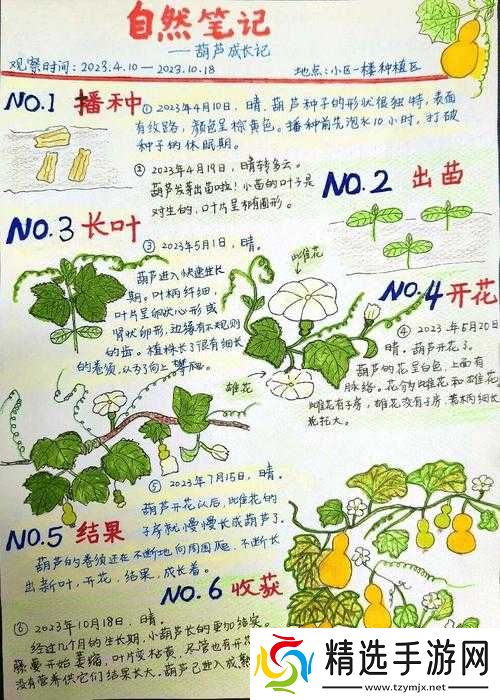 自然笔记
——葫芦成长记
观察时间：2023.4.10—2023.10.18
地点：小区一楼种植区
NO.1 播种
①2023年4月10日，晴。葫芦种子的形状很独特，表面
有纹路，颜色呈棕黄色。播种前先泡水10小时，打破
种子的休眠期。
②2023年4月19日，晴转多云。
葫芦发芽出苗啦！小苗的叶子是
对生的，叶片呈卵圆形。
NO.2 出苗
NO.3 长叶
③2023年5月1日，晴。
葫芦进入快速生长
期。叶柄纤细，
叶片呈卵状心形或
肾状卵形，边缘有不规则
的齿。植株长了很有细长
的卷须，从多向上攀爬。
雌花
雄花
NO.4 开花
④2023年5月20日
晴。葫芦开花了。
葫芦的花呈白色，上面有
脉络。花分为雌花和雄花
雌花有子房，雄花没有子房，
花托大。
⑤2023年7月15日，晴。
葫芦开花以后，雌花的
子房就慢慢长成葫芦了。
NO.5 结果
葫芦的卷须还在不断地向周围爬，不断长
出新叶，开花，结果，成长着。
NO.6 收获
⑥2023年10月18日，晴。
经过几个月的生长期，小葫芦长的更加结实。
藤蔓开始萎缩，叶片变枯黄，尽管也有开花
没有营养供它们结果长大。葫芦已进入成熟
精选手游网
www.tzymjx.net